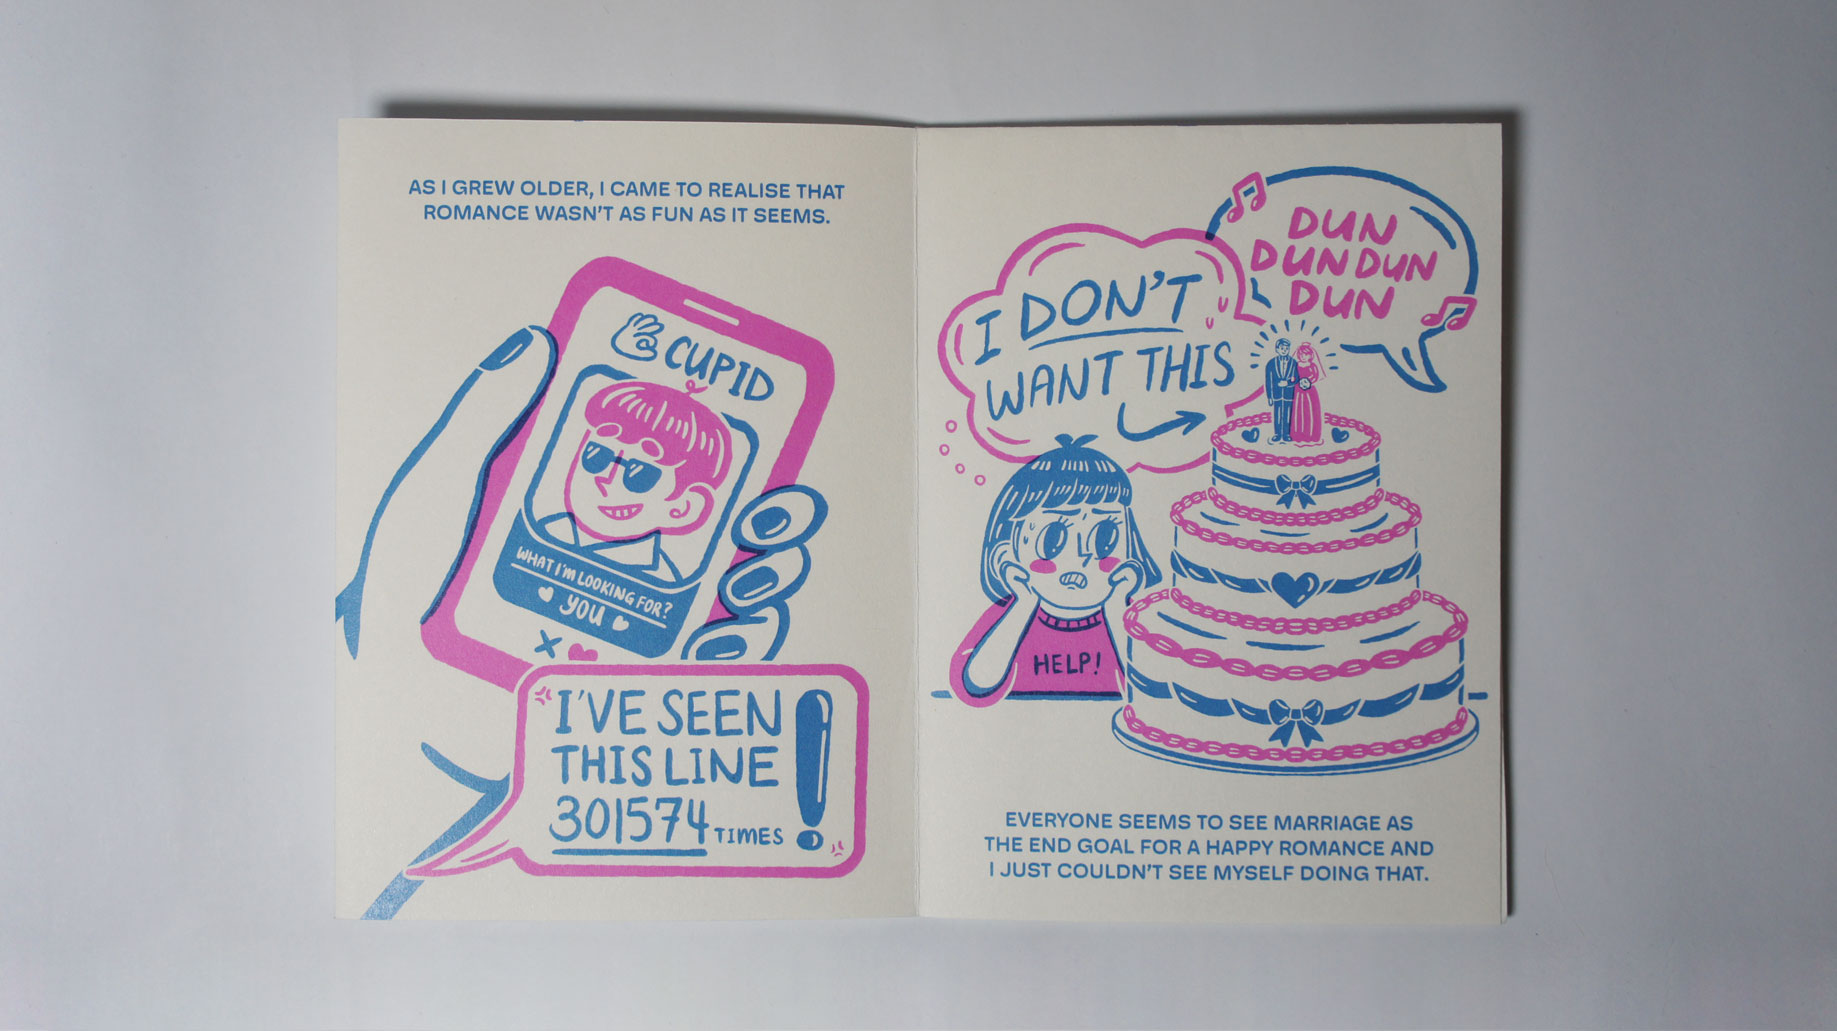 AS I GREW OLDER, I CAME TO REALISE THAT
ROMANCE WASN'T AS FUN AS IT SEEMS.
CUPID
WHAT I'M LOOKING FOR?
YOU
I'VE SEEN
THIS LINE
301574 TIMES
!
DUN
DUN DUN
DUN
I DON'T
WANT THIS
HELP!
EVERYONE SEEMS TO SEE MARRIAGE AS
THE END GOAL FOR A HAPPY ROMANCE AND
I JUST COULDN'T SEE MYSELF DOING THAT.